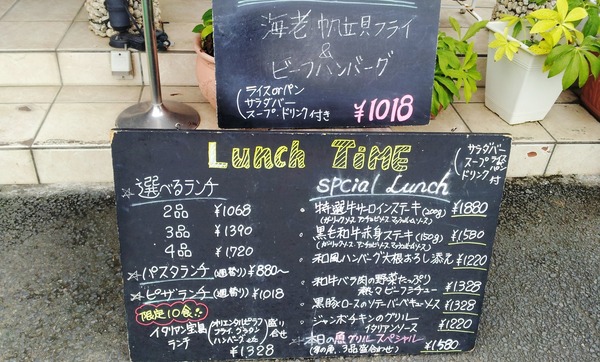 海老・帆立貝フライ
&
ビーフハンバーグ
ライスorパン
サラダバー
スープ、ドリンク付き
¥1018
LUNCH TIME
サラダバー
スープ ライス
パン
ドリンク付
☆選べるランチ
2品 ¥1068
3品 ¥1390
4品 ¥1720
☆パスタランチ(週替り) ¥880〜
☆ピザランチ(週替り) ¥1018
限定10食
イタリアン宝島
ランチ
オリエンタルピラフ
フライ、グラタン
ハンバーグ etc
盛り合せ
¥1328
spcial Lunch
・特選牛サーロインステキ(200g) ¥1880
・黒毛和牛赤身ステキ(150g) ¥1580
・和風ハンバーグ大根おろし添え ¥1220
・和牛バラ肉の野菜たっぷり
ビーフシチュー ¥1328
・黒豚ロースのソテーバーベキューソース ¥1328
・ジャンボチキンのグリル
イタリアンソース ¥1220
・本日の魚グリルスペシャル
3品盛合わせ) ¥1580